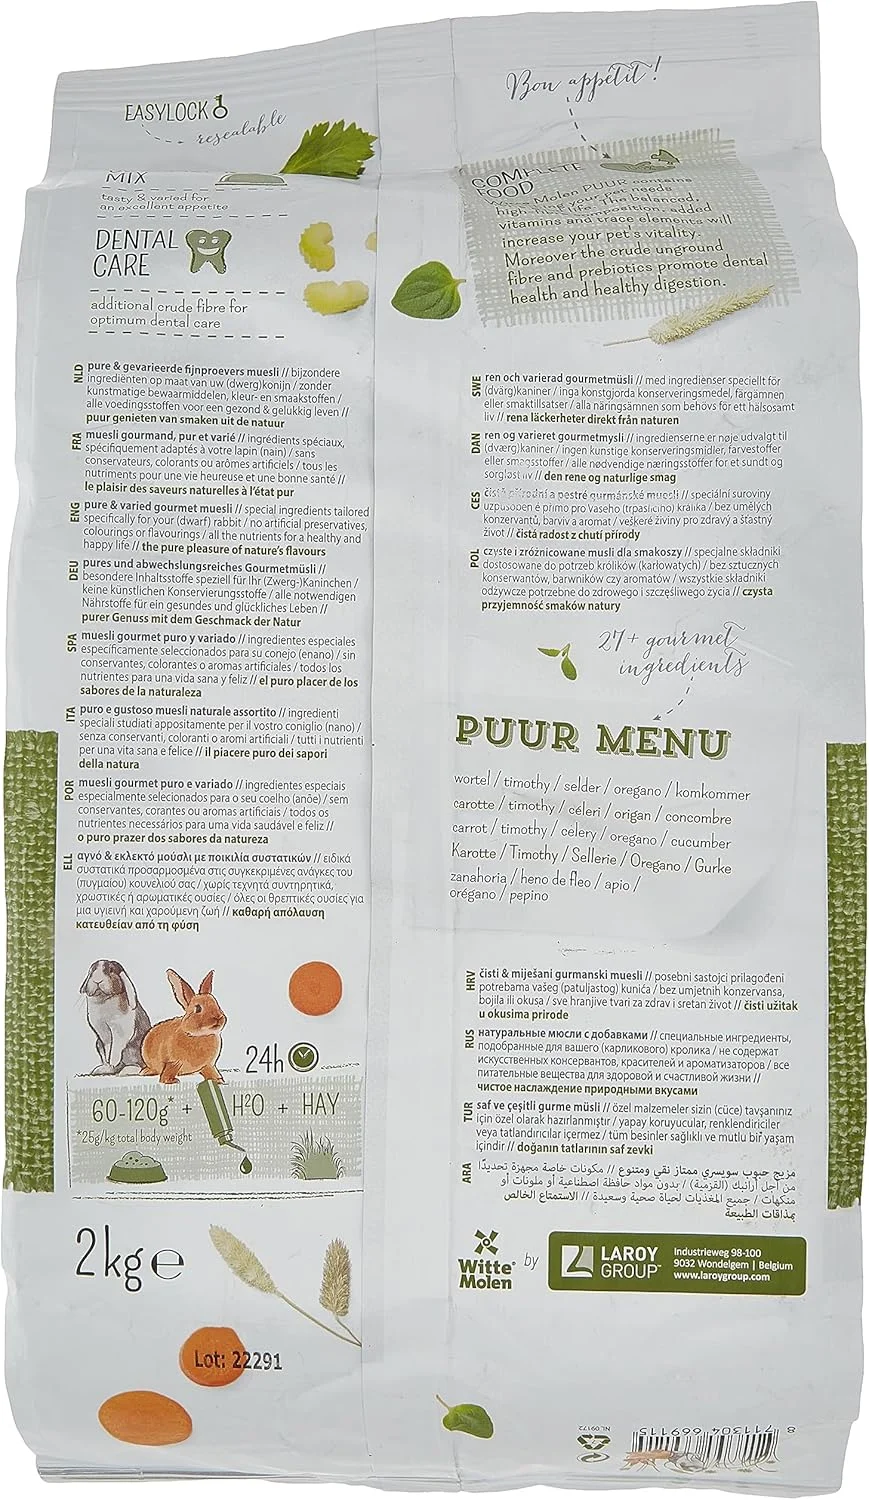 EASYLOCK
resealable
MIX
tasty & varied for
an excellent appetite
DENTAL
CARE
additional crude fibre for
optimum dental care
Bon appétit!
COMPLETE
FOOD
Molen PUUR contains
vitamins and trace elements will
increase your pet's vitality.
Moreover the crude unground
fibre and prebiotics promote dental
health and healthy digestion.
NLD
pure & gevarieerde fijnproevers muesli // bijzondere
ingrediënten op maat van uw (dwerg)konijn / zonder
kunstmatige bewaarmiddelen, kleur- en smaakstoffen /
alle voedingsstoffen voor een gezond & gelukkig leven //
puur genieten van smaken uit de natuur
FRA
muesli gourmand, pur et varié // ingrédients spéciaux,
spécifiquement adaptés à votre lapin (nain) / sans
conservants, colorants ou arômes artificiels / tous les
nutriments pour une vie heureuse et une bonne santé //
le plaisir des saveurs naturelles à l'état pur
ENG
pure & varied gourmet muesli // special ingredients tailored
specifically for your (dwarf) rabbit / no artificial preservatives,
colourings or flavourings / all the nutrients for a healthy and
happy life // the pure pleasure of nature's flavours
DEU
pures und abwechslungsreiches Gourmetmüsli //
besondere Inhaltsstoffe speziell für Ihr (Zwerg-)Kaninchen /
keine künstlichen Konservierungsstoffe / alle notwendigen
Nährstoffe für ein gesundes und glückliches Leben //
purer Genuss mit dem Geschmack der Natur
SPA
muesli gourmet puro y variado // ingredientes especiales
específicamente seleccionados para su conejo (enano) / sin
conservantes, colorantes o aromas artificiales / todos los
nutrientes para una vida sana y feliz // el puro placer de los
sabores de la naturaleza
ITA
puro e gustoso muesli naturale assortito // ingredienti
speciali studiati appositamente per il vostro coniglio (nano) /
senza conservanti, coloranti o aromi artificiali / tutti i nutrienti
per una vita sana e felice // il piacere puro dei sapori
della natura
POR
muesli gourmet puro e variado // ingredientes especiais
especialmente selecionados para o seu coelho (anõe) / sem
conservantes, corantes ou aromas artificiais / todos os
nutrientes necessários para uma vida saudável e feliz //
o puro prazer dos sabores da natureza
ELL
αγνό & εκλεκτό μούσλι με ποικιλία συστατικών // ειδικά
συστατικά προσαρμοσμένα στις συγκεκριμένες ανάγκες του
(πυγμαίου) κουνελιού σας / χωρίς τεχνητά συντηρητικά,
χρωστικές ή αρωματικές ουσίες / όλες οι θρεπτικές ουσίες για
μια υγιεινή και χαρούμενη ζωή // καθαρή απόλαυση
κατευθείαν από τη φύση
24h
60-120g* + H2O + HAY
*25g/kg total body weight
2kg e
Lot: 22291
SWE
ren och varierad gourmetmüsli // med ingredienser speciellt för
(dvärg)kaniner / inga konstgjorda konserveringsmedel, färgämnen
eller smaktillsatser / alla näringsämnen som behövs för ett hälsosamt
liv // rena läckerheter direkt från naturen
DAN
ren og varieret gourmetmysli // ingredienserne er nøje udvalgt til
(dværg)kaniner / ingen kunstige konserveringsmidler, farvestoffer
eller smagsstoffer / alle nødvendige næringsstoffer for et sundt og
sorgløst liv // den rene og naturlige smag
CES
čistě přírodní a pestré gurmánské muesli // speciální suroviny
uzpůsobené přímo pro Vašeho (trpasličího) králíka / bez umělých
konzervantů, barviv a aromat / veškeré živiny pro zdravý a šťastný
život // čistá radost z chutí přírody
POL
czyste i zróżnicowane musli dla smakoszy // specjalne składniki
dostosowane do potrzeb królików (karłowatych) / bez sztucznych
konserwantów, barwników czy aromatów / wszystkie składniki
odżywcze potrzebne do zdrowego i szczęśliwego życia // czysta
przyjemność smaków natury
27+ gourmet
ingredients
PUUR MENU
wortel / timothy / selder / oregano / komkommer
carotte / timothy / céleri / origan / concombre
carrot / timothy / celery / oregano / cucumber
Karotte / Timothy / Sellerie / Oregano / Gurke
zanahoria / heno de fleo / apio /
orégano / pepino
HRV
čisti & miješani gurmanski muesli // posebni sastojci prilagođeni
potrebama vašeg (patuljastog) kunića / bez umjetnih konzervansa,
bojila ili okusa / sve hranjive tvari za zdrav i sretan život // čisti užitak
u okusima prirode
RUS
натуральные мюсли с добавками // специальные ингредиенты,
подобранные для вашего (карликового) кролика / не содержат
искусственных консервантов, красителей и ароматизаторов / все
питательные вещества для здоровой и счастливой жизни //
чистое наслаждение природными вкусами
TUR
saf ve çeşitli gurme müsli // özel malzemeler sizin (cüce) tavşanınız
için özel olarak hazırlanmıştır / yapay koruyucular, renklendiriciler
veya tatlandırıcılar içermez / tüm besinler sağlıklı ve mutlu bir yaşam
içindir // doğanın tatlarının saf zevki
ARA
مزيج حبوب سويسري ممتاز نقي ومتنوع // مكونات خاصة مجهزة تحديدًا
من أجل أرانبك (القزمية) / بدون مواد حافظة اصطناعية أو ملونات أو
منكهات / جميع المغذيات لحياة صحية وسعيدة // الاستمتاع الخالص
بمذاقات الطبيعة
Witte
Molen
by
LAROY
GROUP
Industrieweg 98-100
9032 Wondelgem | Belgium
www.laroygroup.com
NL 09172
8 711304 669115